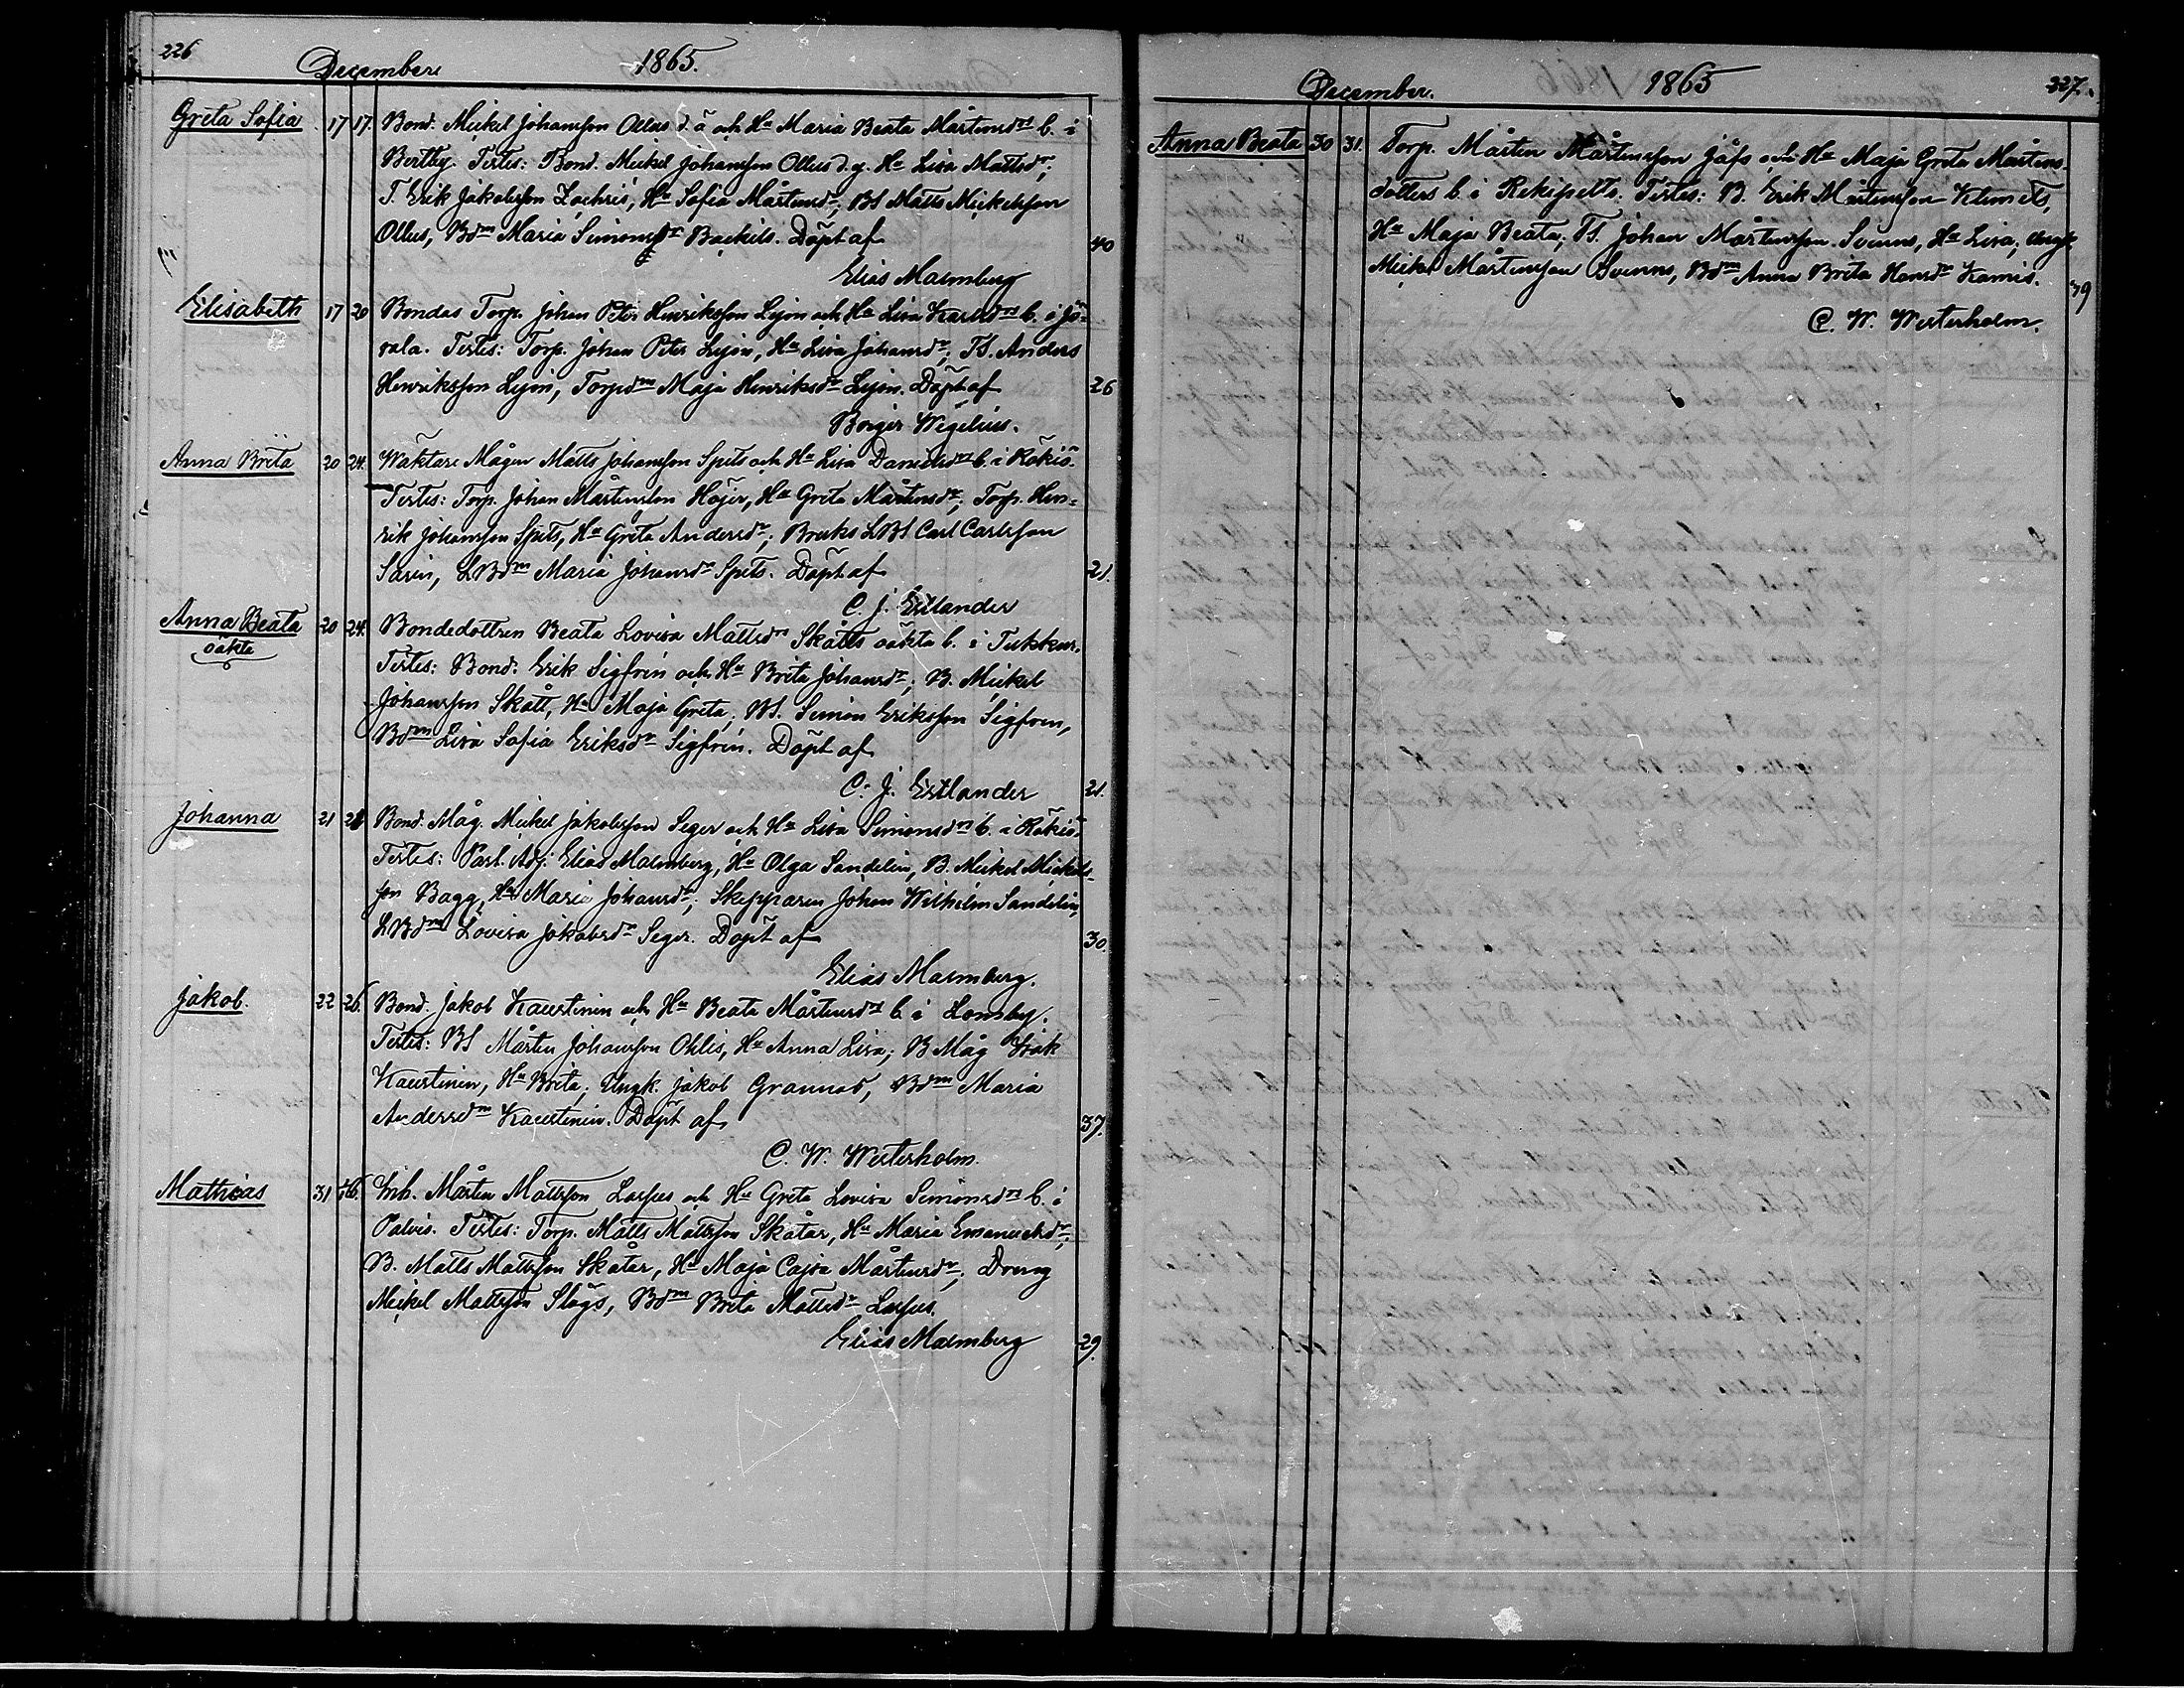 226
December 1865.
Greta Sofia 17 17. Bond. Mickel Johansson Ollus d. ä och Hu Maria Beata Mårtensdrs b. i
Bertby. Testes: Bond. Mickel Johansson Ollus d.y. Hu Lisa Mattsdr;
T. Erik Jakobsson Zachris, Hu Sofia Mårtensdr, BS Matts Mickelsson
Ollus, Bdm Maria Simonsdr Backils. Döpt af 40
Elias Malmberg
Elisabeth 17 20 Bondas Torp. Johan Peter Henriksson Lejon och Hu Lisa Karlsdrs b. i Jö-
rala. Testes: Torp. Johan Peter Lejon, Hu Lisa Johansdr; TS. Anders
Henriksson Lejon, Torpdm Maja Henriksdr Lejon. Döpt af 26
Börger Wegelius.
Anna Brita 20 24. Wäktare Mågen Matts Johansson Spets och Hu Lisa Danielsdrs b. i Rökiö.
Testes: Torp. Johan Mårtensson Höjer, Hu Greta Mårtensdr; Torp. Hen-
rik Johansson Spets, Hu Greta Andersdr; Bruks LBS Carl Carlsson
Sarin, LBdm Maria Johansdr Spets. Döpt af 21.
C. J. Estlander
Anna Beata 20 24. Bondedottren Beata Lovisa Mattsdrs Skatts oäkta b. i Tukkur.
oäkta
Testes: Bond. Erik Sigfrin och Hu Brita Johansdr; B. Mickel
Johansson Skatt, Hu Maja Greta; BS. Simon Eriksson Sigfren,
Bdm Lisa Sofia Eriksdr Sigfrin. Döpt af
C. J. Estlander 21.
Johanna 21 28 Bond. Måg. Mickel Jakobsson Seger och Hu Lisa Simonsdrs b. i Rökiö.
Testes: Past. Adj. Elias Malmberg, Hu Olga Sandelin, B. Mickel Mickels-
son Bagg, Hu Maria Johansdr; Skepparen Johan Wilhelm Sandelin,
LBdm Lovisa Jakobsdr Seger. Döpt af 30.
Elias Malmberg.
Jakob. 22 26. Bond. Jakob Kaustinen och Hu Beata Mårtensdrs b. i Lomby.
Testes: BS Mårten Johansson Ohlis, Hu Anna Lisa; B Måg Isak
Kaustinen, Hu Brita; Ungk. Jakob Grannas, Bdm Maria
Andersdm Kaustinen. Döpt af 37.
C. W. Westerholm.
Mathias 31 Inh. Mårten Mattsson Laspus och Hu Greta Lovisa Simonsdrs b. i
Palvis. Testes: Torp. Matts Mattsson Skåtar, Hu Maria Emanuelsdr;
B. Matts Mattsson Skåtar, Hu Maja Cajsa Mårtensdr; Dreng
Mickel Mattsson Slågs, Bdm Brita Mattsdr Laspus.
Elias Malmberg 29.
December. 1865 227.
Anna Beata 30 31. Torp. Mårten Mårtensson Jåfs och Hu Maja Greta Mårtens-
dotters b. i Rekipelto. Testes: B. Erik Mårtensson Klemets,
Hu Maja Beata; TS. Johan Mårtensson Svenns, Hu Lisa; Ungk
Mickel Mårtensson Svenns, Bdm Anna Brita Hansdr Kamis. 39
C. W. Westerholm.